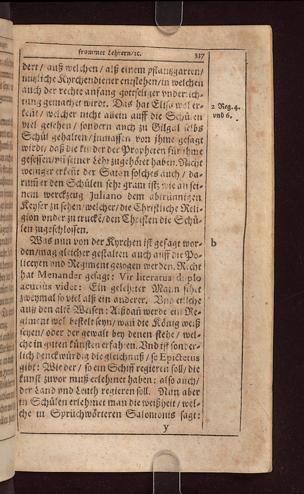 frommer Lehrern/ıc. 337
dert/ auß welchen/ alß einem pflantzgarten/
nutzliche Kyrchendiener entstehen/ in welchen
auch der rechte anfang gottseliger vnderrich-
tung gemachet wirdt. Das hat Eliſa wol er-
kent/ welcher nicht allein auff die Schůlen
viel gesehen/ sondern auch zu Gilgal selbs
Schůl gehalten/ inmassen von jhme gesagt
wirdt/ daß die kinder der Propheten für jhme
gesessen/ vñ seiner Lehr zugehöret haben. Nicht
weniger erkent der Satan solches auch/ da-
rumb er den Schůlen sehr gram ist: wie an sei-
nem werckzeug Juliano dem abtrünnigen
Keyser zu sehen/ welcher/ die Christliche Reli-
gion vnder zu trucke/ den Christen die Schů-
len zugeschlossen.
2 Reg. 4.
vnd 6.
Was nun von der Kyrchen ist gesagt wor-
den/ mag gleicher gestalten auch auff die Po-
liceyen vnd Regiment gezogen werden. Recht
hat Menander gesagt: Vir literatus duplo
acutius videt: Ein gelehrter Mann sihet
zweymal so viel alß ein anderer. Vnd
auß den alte Weisen: Alßdañ werde ein Re-
giment wol bestelt seyn/ wañ die König weiß
seyen/ oder der gewalt bey denen stehe/ wel-
che in guten künsten erfahren. Vnd ist sonder-
lich denckwürdig die gleichnuß/ so Epictetus
gibt: Wie der/ so ein Schiff regieren soll/ die
kunst zuvor muß erlehrnet haben: also auch/
der Land vnd Leuth regieren soll. Nun aber
in Schůlen erlehrnet man die weißheit/ wel-
che in Sprüchwörteren Salomonis sagt:
b
y